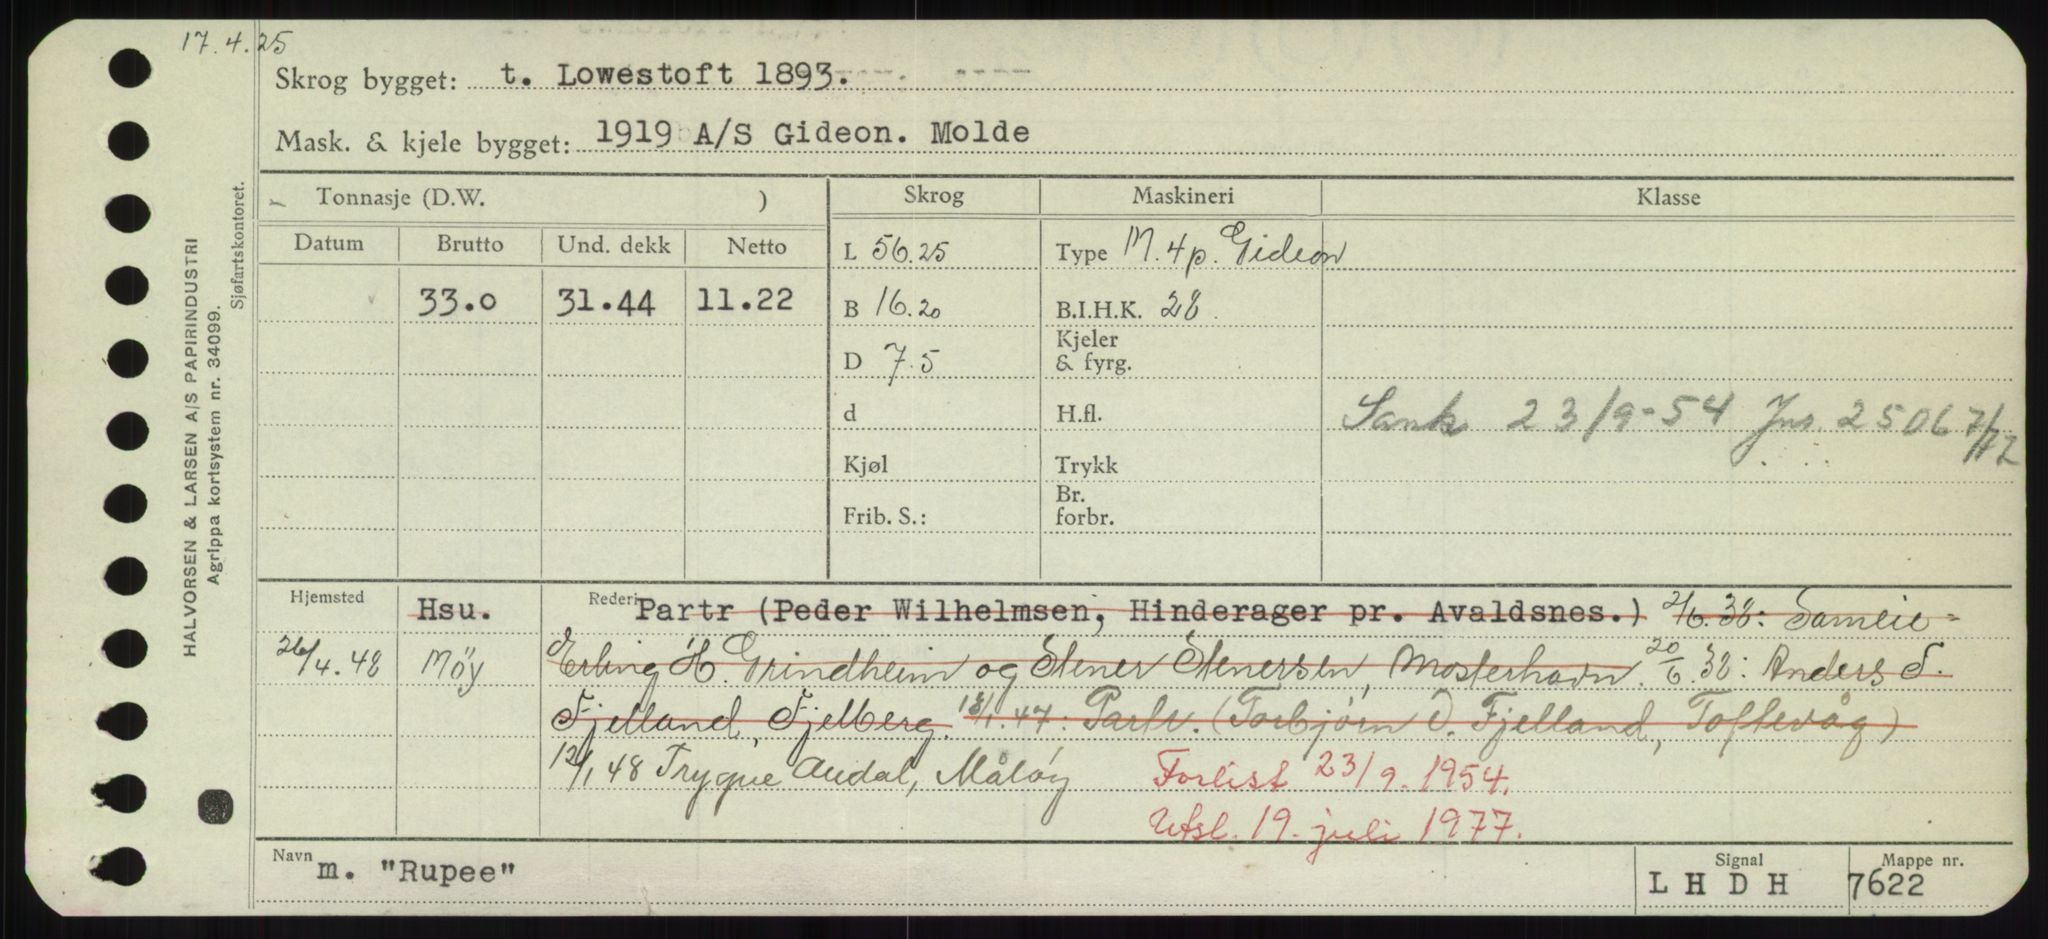 17.4.25
Skrog bygget: t. Lowestoft 1893.
Mask. & kjele bygget: 1919 A/S Gideon. Molde
Tonnasje (D.W. ) Skrog Maskineri Klasse
Datum Brutto Und. dekk Netto
L 56.25 Type M. 4p. Gideon
33.0 31.44 11.22 B 16.20 B.I.H.K. 28
D 7.5 Kjeler & fyrg.
d H.fl. Sank 23/9-54 Jnr. 25067/72
Kjøl Trykk
Frib. S.: Br. forbr.
Hjemsted Hsu. Rederi Partr (Peder Wilhelmsen, Hinderager pr. Avaldsnes.) 2/6.38: Sameie =
26/4.48 Møy Erling H. Grindheim og Stener Stenersen, Mosterhavn. 20/6.38: Anders T.
Fjelland, Fjelberg. 18/1.47: Partr. (Torbjørn O. Fjelland, Toftevåg)
12/1 48 Trygve Audal, Måløy Forlist 23/9. 1954.
Utsl. 19. juli 1977.
Navn m. "Rupee" Signal LHDH Mappe nr. 7622
HALVORSEN & LARSEN A/S PAPIRINDUSTRI
Agrippa kortsystem nr. 34099.
Sjøfartskontoret.